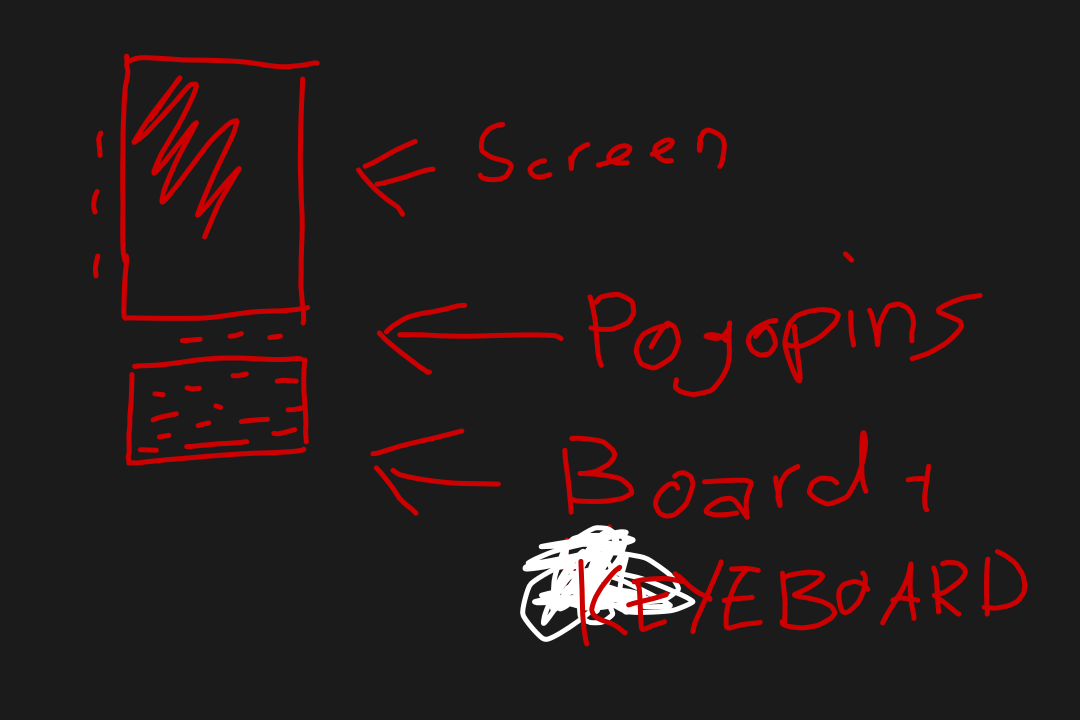 Screen
Pogopins
Board +
KEYBOARD